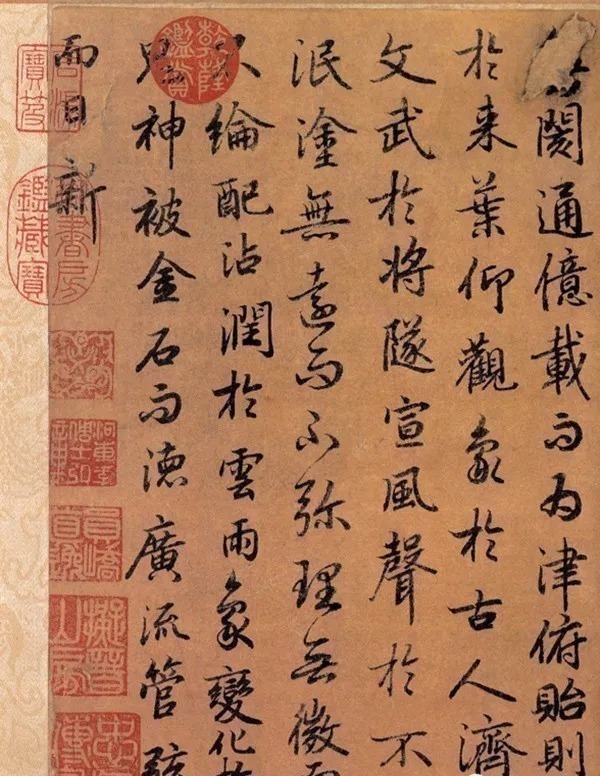 閡通億載而為津俯貽則
於来葉仰觀象於古人濟
文武於将隧宣風聲於不
泯塗無遠而不弥理无微而
綸配沾潤於雲雨象變化於
鬼神被金石而德廣流管絃
而日新
乾隆鑑賞
鑑藏寶